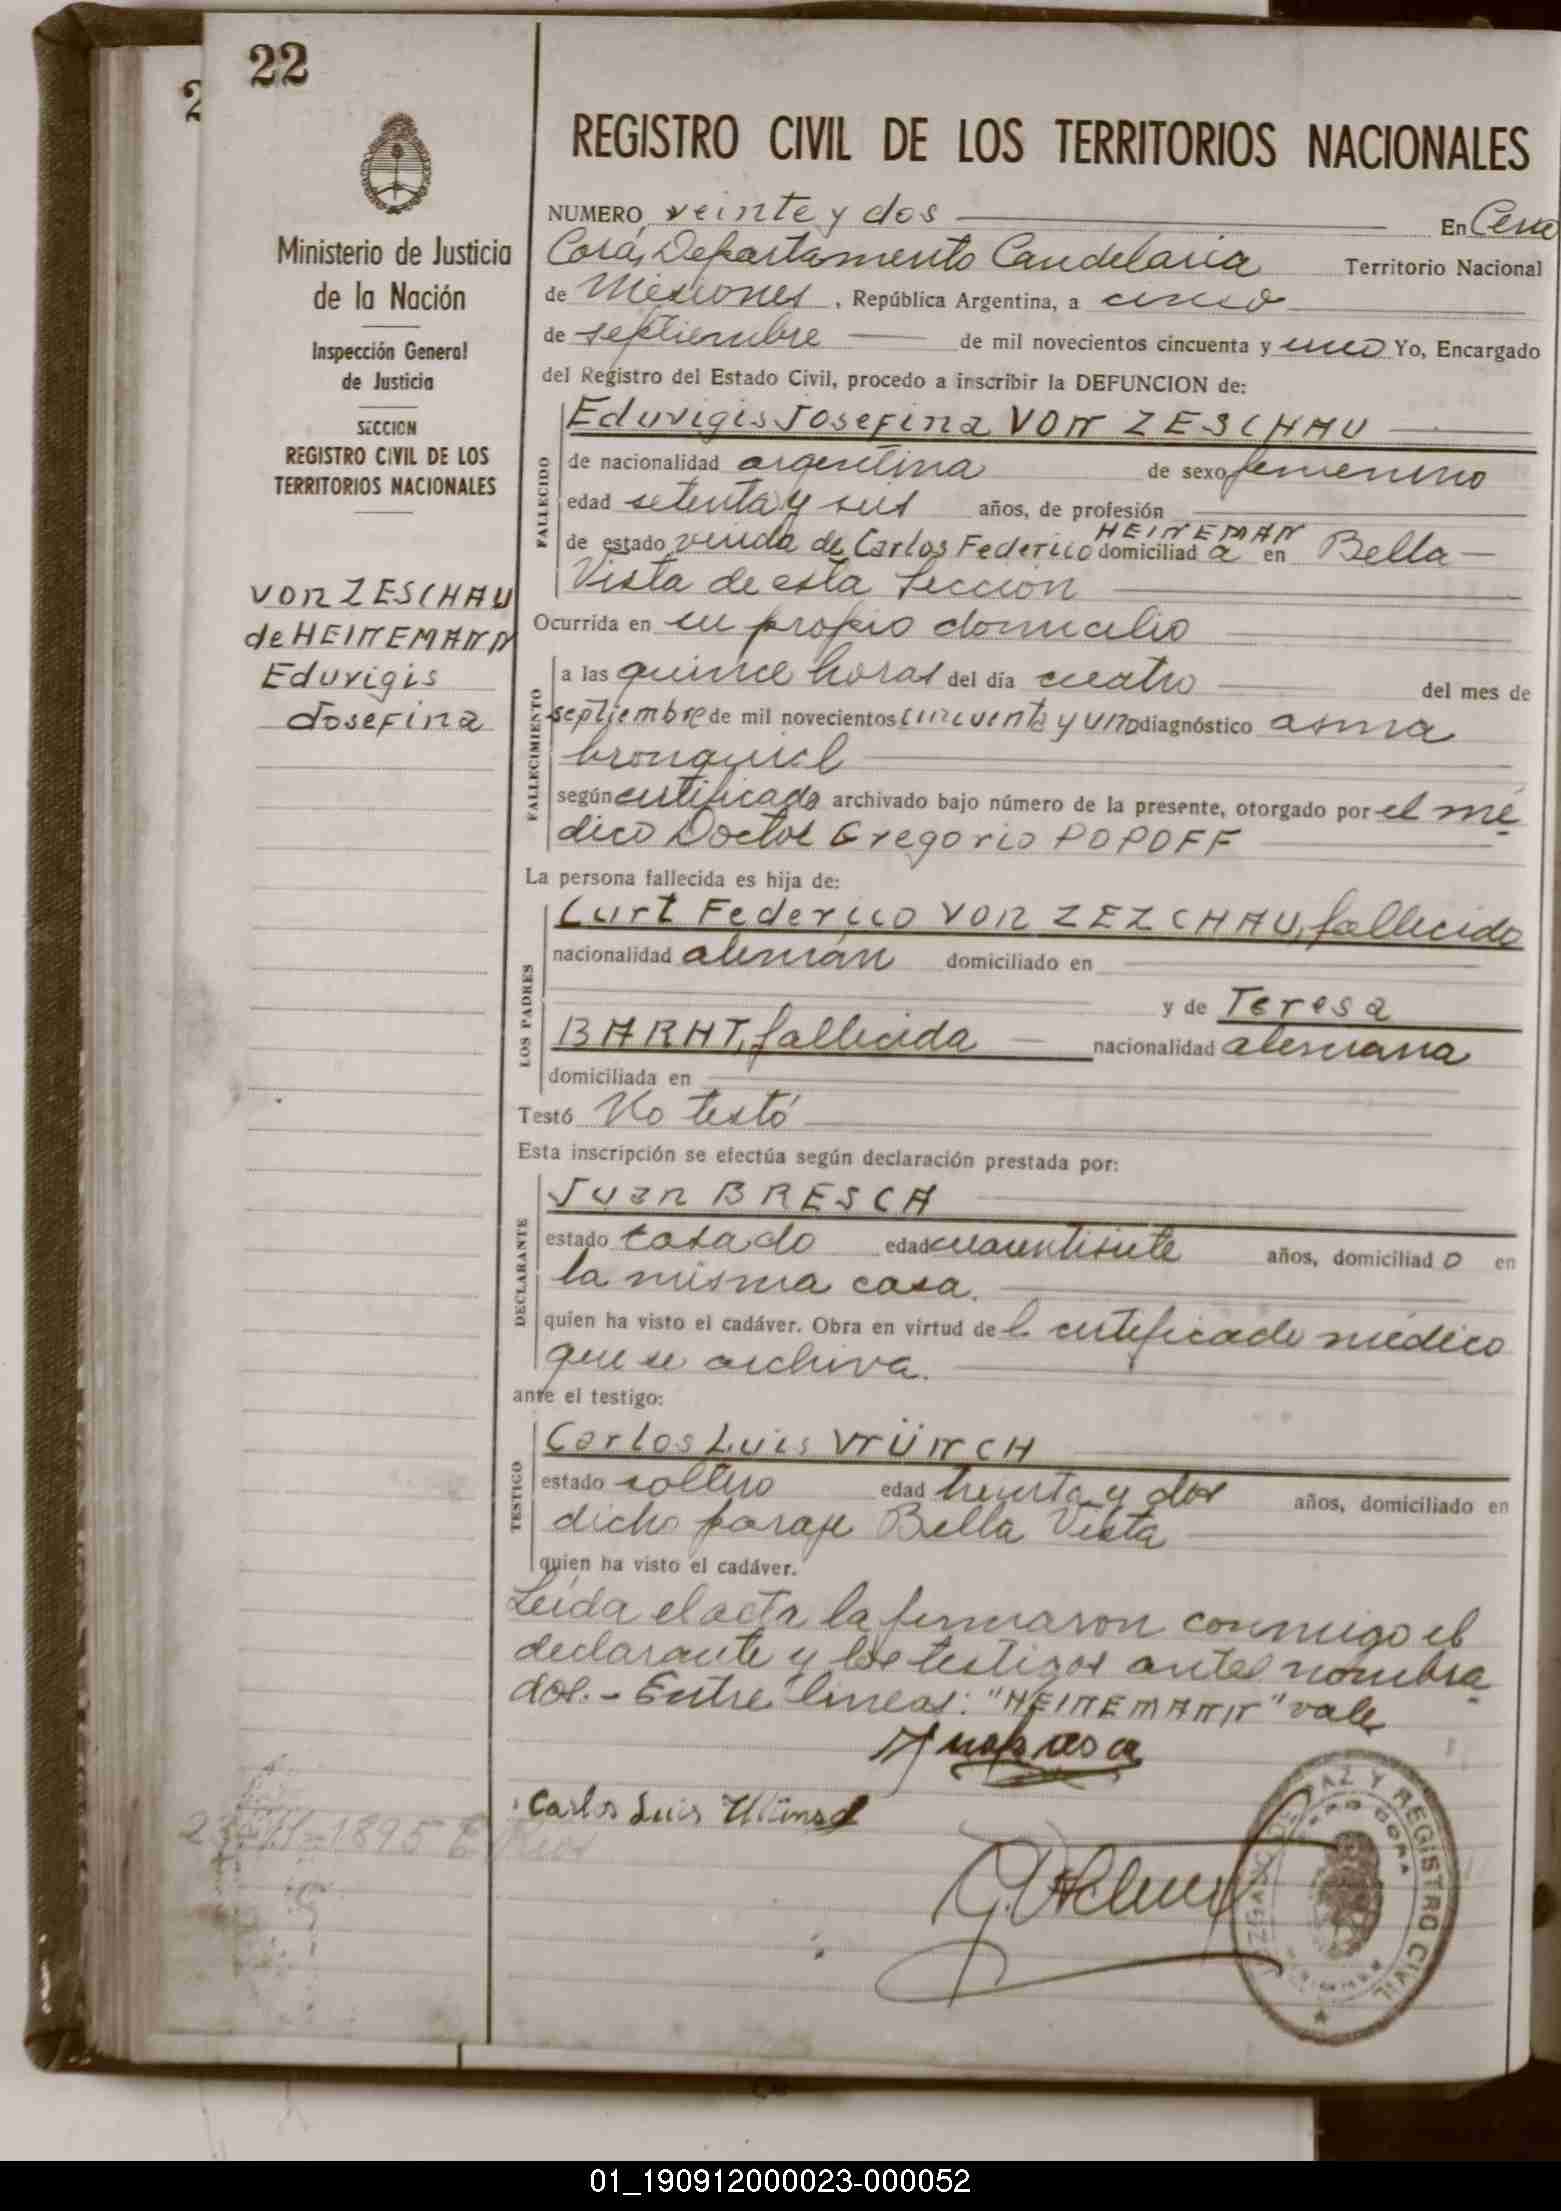 22
2
Ministerio de Justicia
de la Nación
Inspección General
de Justicia
SECCION
REGISTRO CIVIL DE LOS
TERRITORIOS NACIONALES
VON ZESCHAU
de HEINEMANN
Eduvigis
Josefina
REGISTRO CIVIL DE LOS TERRITORIOS NACIONALES
NUMERO veinte y dos En Cerro
Corá, Departamento Candelaria Territorio Nacional
de Misiones, República Argentina, a cinco
de septiembre de mil novecientos cincuenta y uno Yo, Encargado
del Registro del Estado Civil, procedo a inscribir la DEFUNCION de:
FALLECIDO
Eduvigis Josefina VON ZESCHAU
de nacionalidad argentina de sexo femenino
edad setenta y seis años, de profesión
HEINEMAN
de estado viuda de Carlos Federico domiciliad a en Bella
Vista de esta Sección
Ocurrida en su propio domicilio
FALLECIMIENTO
a las quince horas del día cuatro del mes de
septiembre de mil novecientos cincuenta y uno diagnóstico asma
bronquial
según certificado archivado bajo número de la presente, otorgado por el mé
dico Doctor Gregorio POPOFF
La persona fallecida es hija de:
LOS PADRES
Curt Federico VON ZEZCHAU, fallecido
nacionalidad alemán domiciliado en
y de Teresa
BARHT, fallecida nacionalidad alemana
domiciliada en
Testó No testó
Esta inscripción se efectúa según declaración prestada por:
DECLARANTE
Juan BRESCA
estado casado edad cuarentisiete años, domiciliad o en
la misma casa.
quien ha visto el cadáver. Obra en virtud de l certificado médico
que se archiva.
ante el testigo:
TESTIGO
Carlos Luis WÜNCH
estado soltero edad treinta y dos años, domiciliado en
dicho paraje Bella Vista
quien ha visto el cadáver.
Leída el acta la firmaron conmigo el
declarante y los testigos antes nombra
dos.- Entre líneas: "HEINEMANN" vale
Carlos Luis
1895
PAZ Y REGISTRO CIVIL
01_190912000023-000052